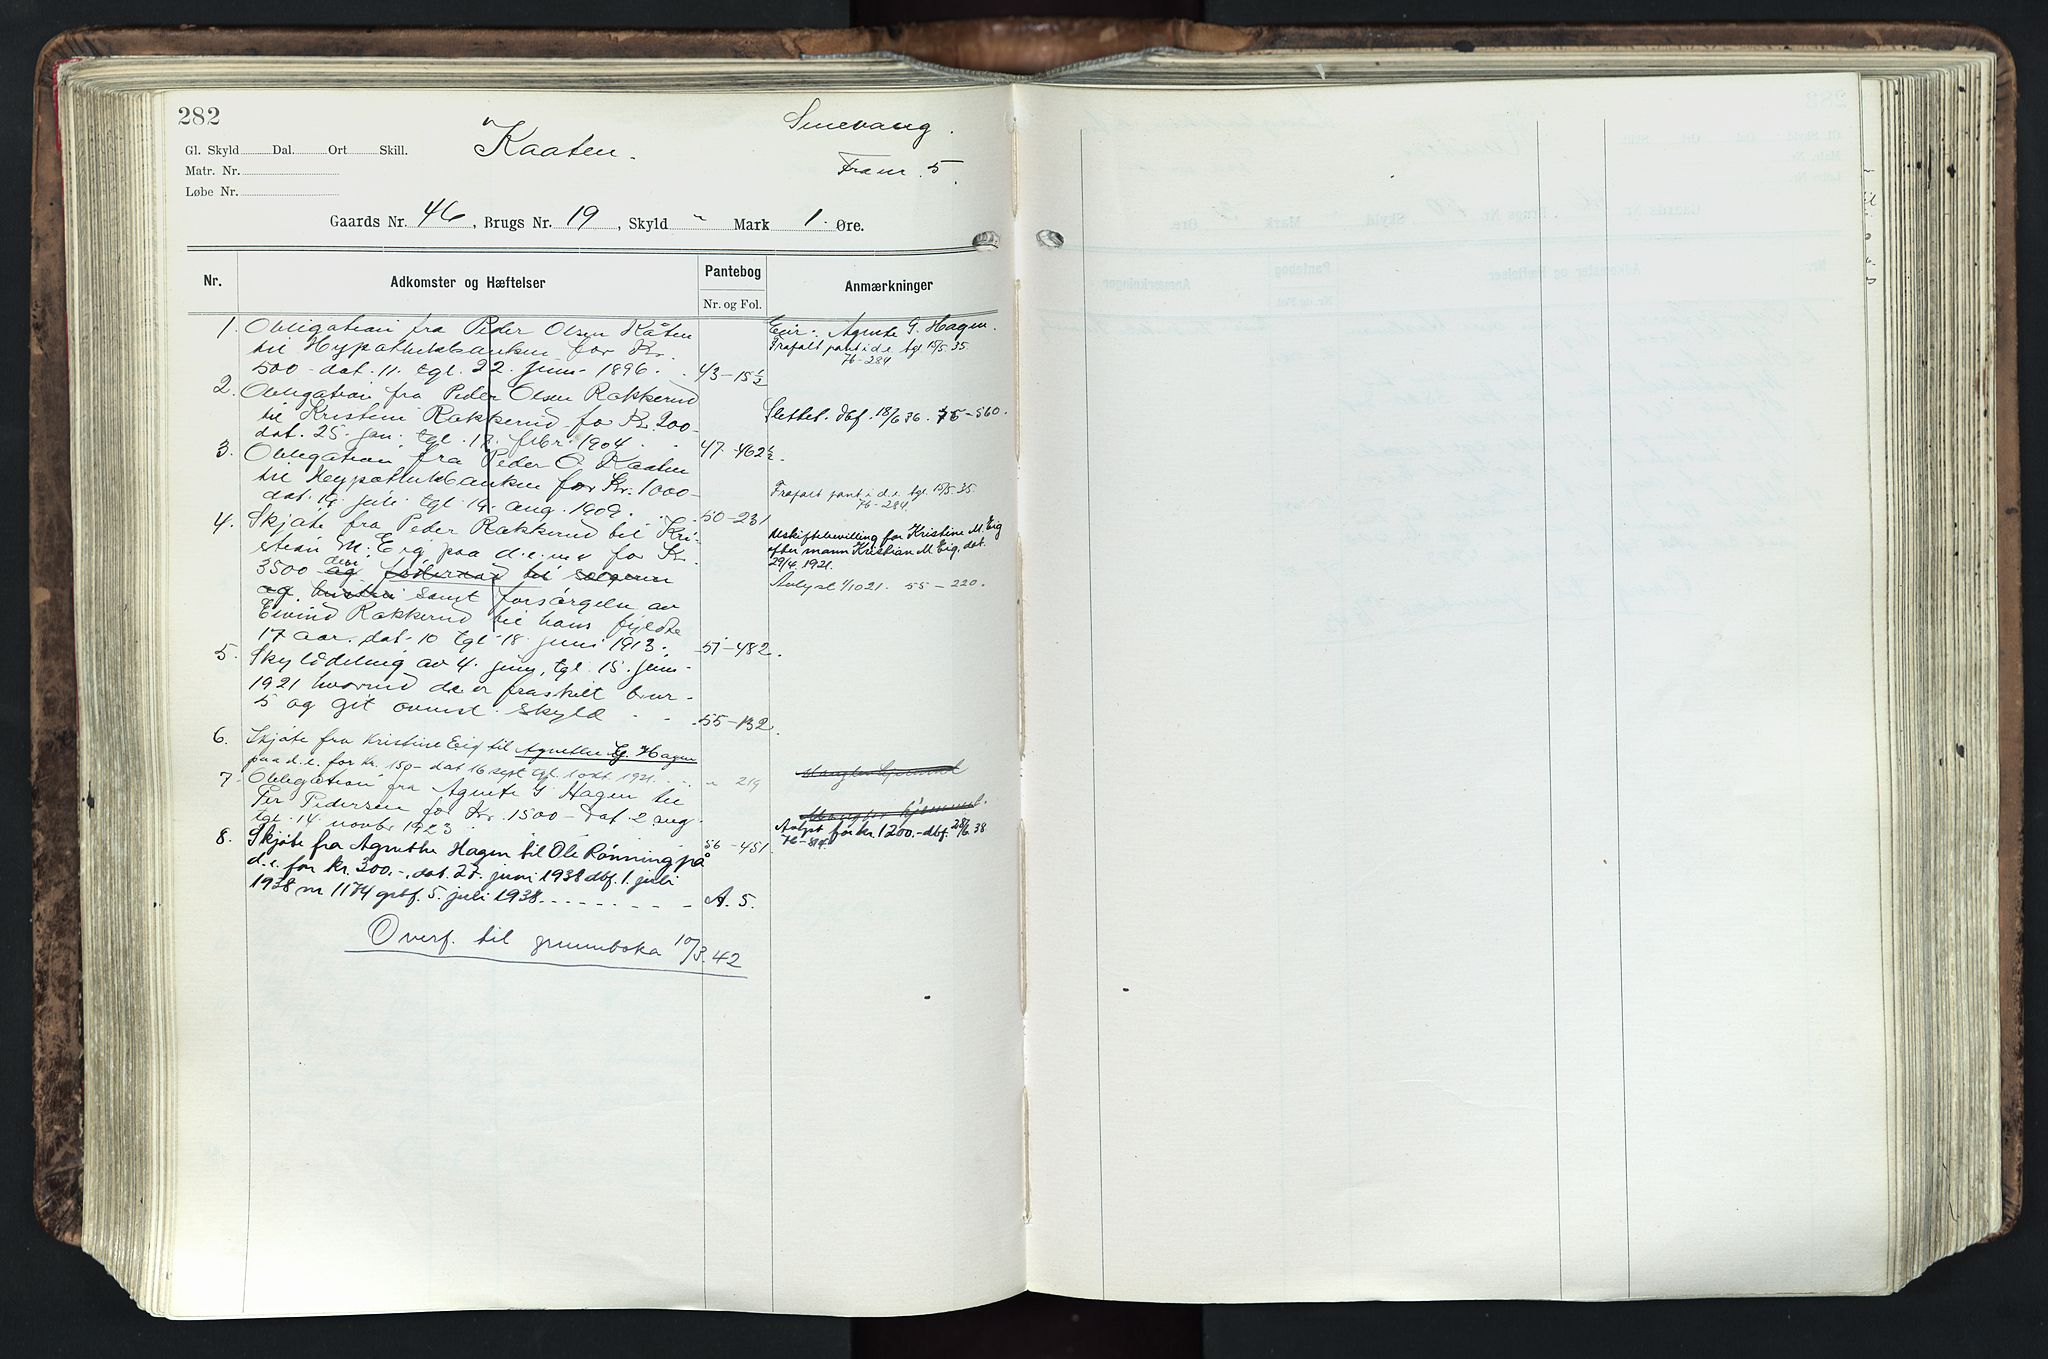 282
Kaaten.
Smevang.
Fra nr. 5.
Gl. Skyld Dal. Ort Skill.
Matr. Nr.
Løbe Nr.
Gaards Nr. 46, Brugs Nr. 19, Skyld " Mark 1. Øre.
Nr. Adkomster og Hæftelser Pantebog Nr. og Fol. Anmærkninger
1. Obligation fra Peder Olsen Kåten
til Hypothekbanken for Kr.
500 dat. 11. tgl. 22. juni 1896. 43-15½
Eier: Agnete G. Hagen.
Frafalt pant i d.e. tgl. 15/5.35.
76-284
2. Obligation fra Peder Olsen Rakkerud
til Kristine Rakkerud for Kr. 200
dat. 25. jan. tgl. febr. 1904. 47-462½.
Slettet. dbf. 18/6 36. 75-560.
3. Obligation fra Peder O. Kaaten
til Hypothekbanken for Kr. 1000-
dat. 19. juli tgl. 19. aug. 1909. 50-231
Frafalt pant i d.e. tgl. 15/5.35.
76-284.
4. Skjøte fra Peder Rakkerud til Kri-
stian M. Eig paa d.e. m.v for Kr.
3500 og føderaad til sælgeren
og samt forsørgelse av
Eivind Rakkerud til hans fyldte
17 aar, dat. 10 tgl. 18. juni 1913. 51-482.
Uskiftebevilling for Kristine M. Eig
efter mann Kristian M Eig, dat.
29/4. 1921.
Avlyst 1/10 21. 55-220.
5. Skylddeling av 4. juni, tgl. 15. juni
1921 hvorved d.e er fraskilt bnr-
5 og git ovenst. skyld 55-132.
6. Skjøte fra Kristine Eig til Agnethe G. Hagen
paa d.e. for kr. 150- dat 16 sept tgl. 1 okt. 1921. " 219
Mangler hjemmel
7. Obligation fra Agnete G Hagen til
Per Pedersen for Kr. 1500- dat 2 aug.
tgl. 14. novbr 1923. 56-451.
Mangler hjemmel.
Avlyst for kr. 1200.- dbf. 28/6 38
76-814.
8. Skjøte fra Agnethe Hagen til Ole Rønning på
d.e. for kr. 300.-, dat. 27. juni 1938 dbf. 1. juli
1938 nr 1174 grbf. 5. juli 1938. A. 5.
Overf. til grunnboka 10/3.42